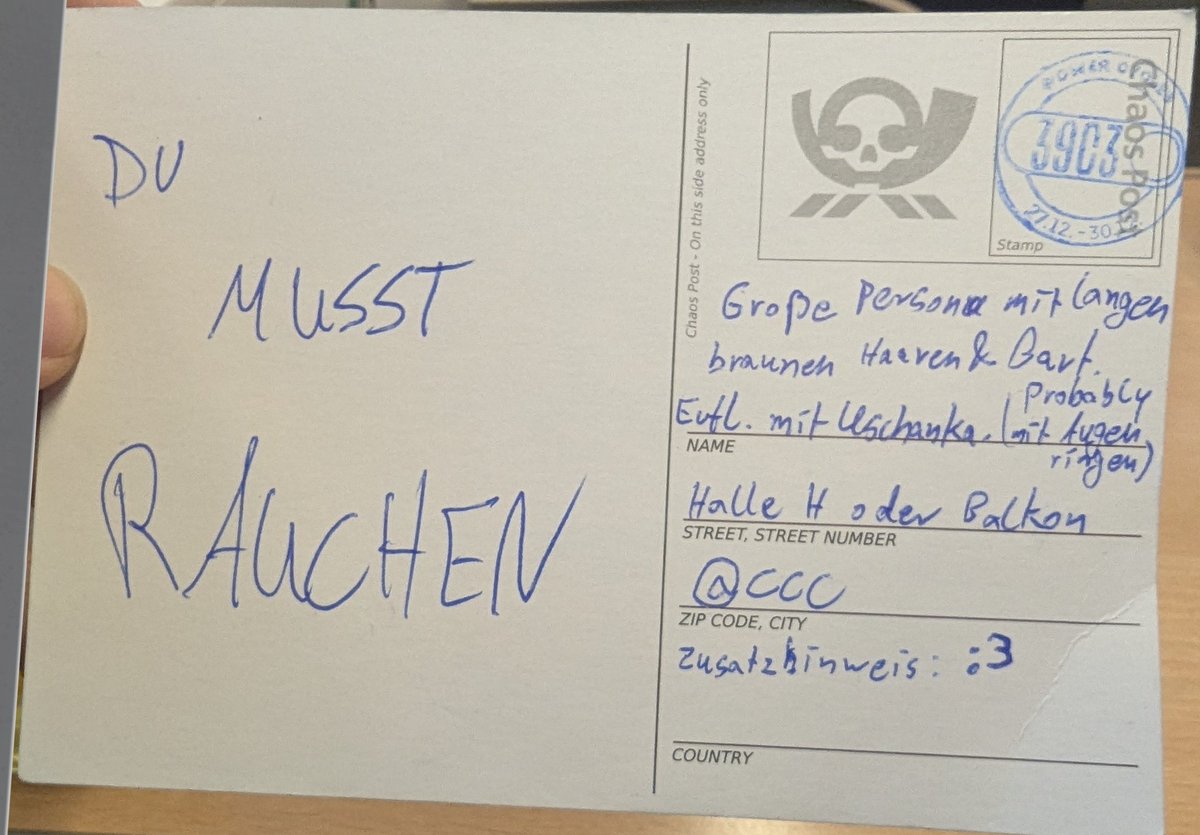 DU
MUSST
RAUCHEN
Chaos Post - On this side address only
Chaos Post
3903
27.12. - 30.12.
Stamp
Große Person mit langen
braunen Haaren & Bart.
Evtl. mit Uschanka. (Probably
mit Augen
ringen)
NAME
Halle H oder Balkon
STREET, STREET NUMBER
@CCC
ZIP CODE, CITY
Zusatzhinweis: :3
COUNTRY